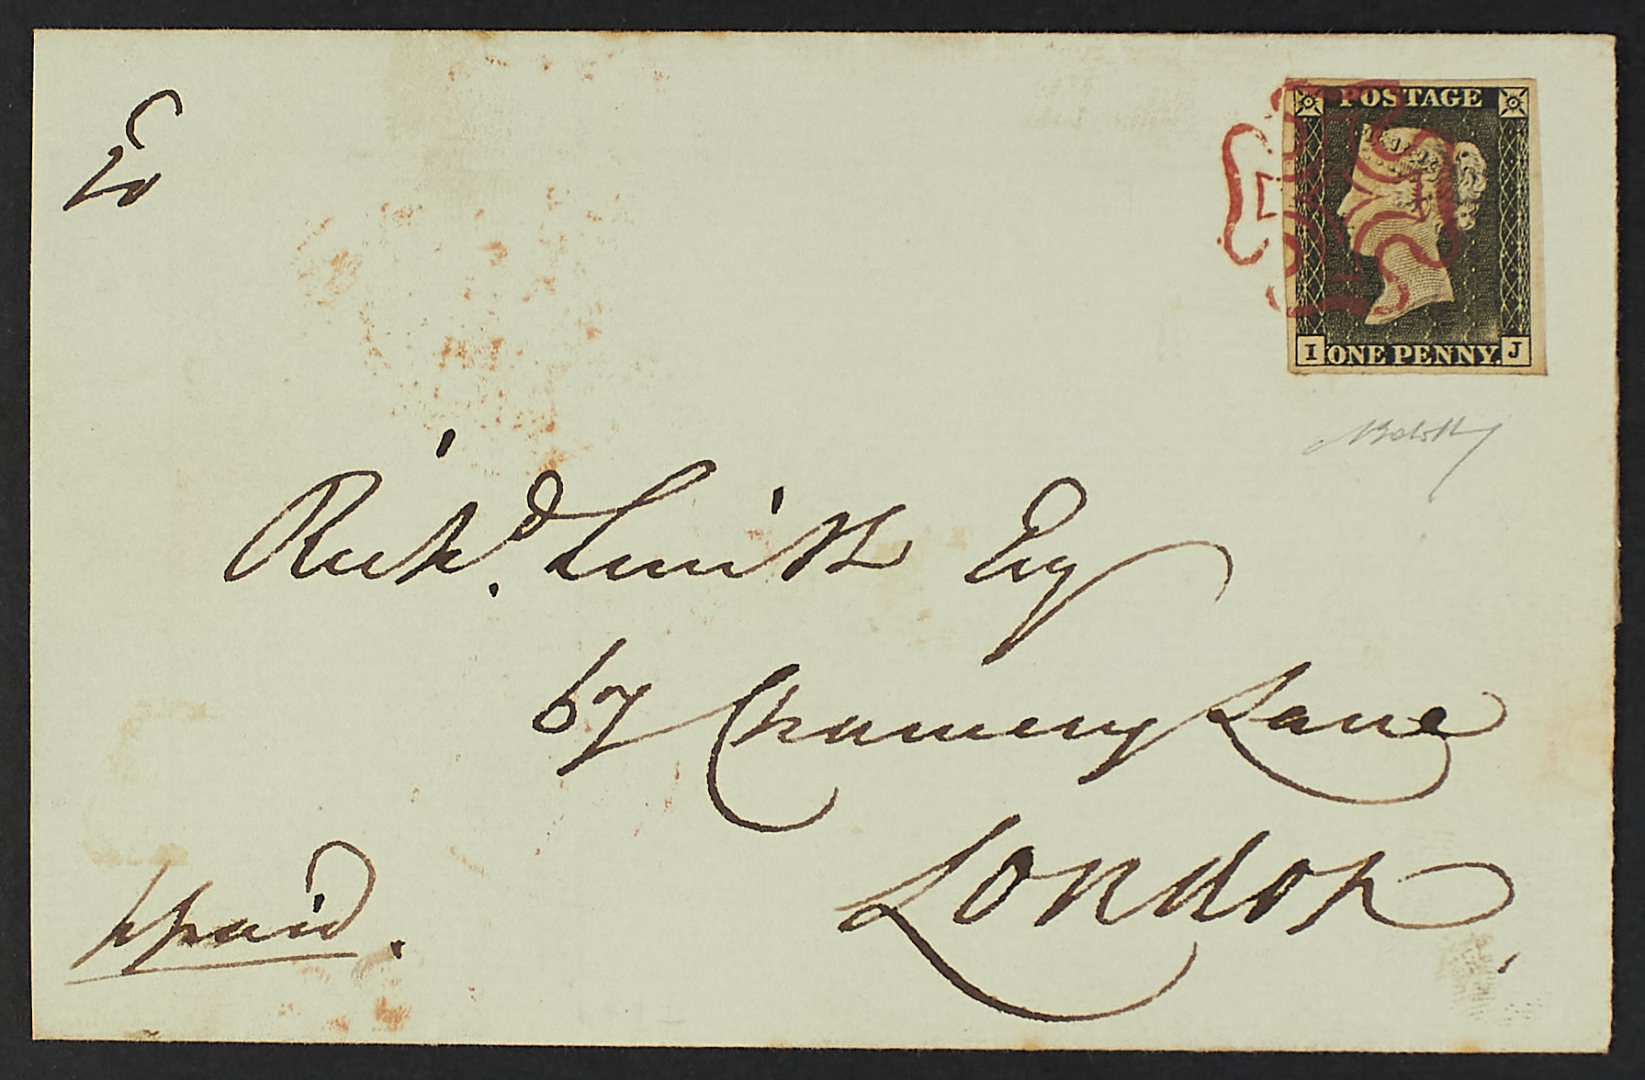 POSTAGE
I ONE PENNY. J
Richd. Smith Esq
67 Chancery Lane
London
ppaid.